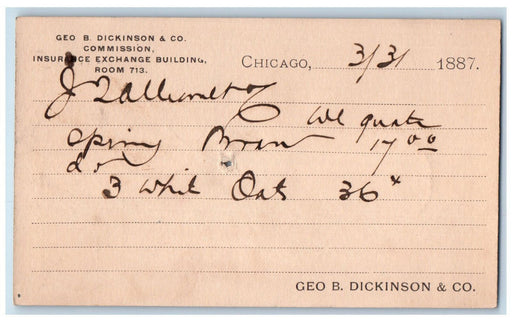 GEO B. DICKINSON & CO.
COMMISSION,
INSURANCE EXCHANGE BUILDING,
ROOM 713.
CHICAGO, 3/31 1887.
We quote
Spring Bran 17 00
do
3 White Oats 36
GEO B. DICKINSON & CO.